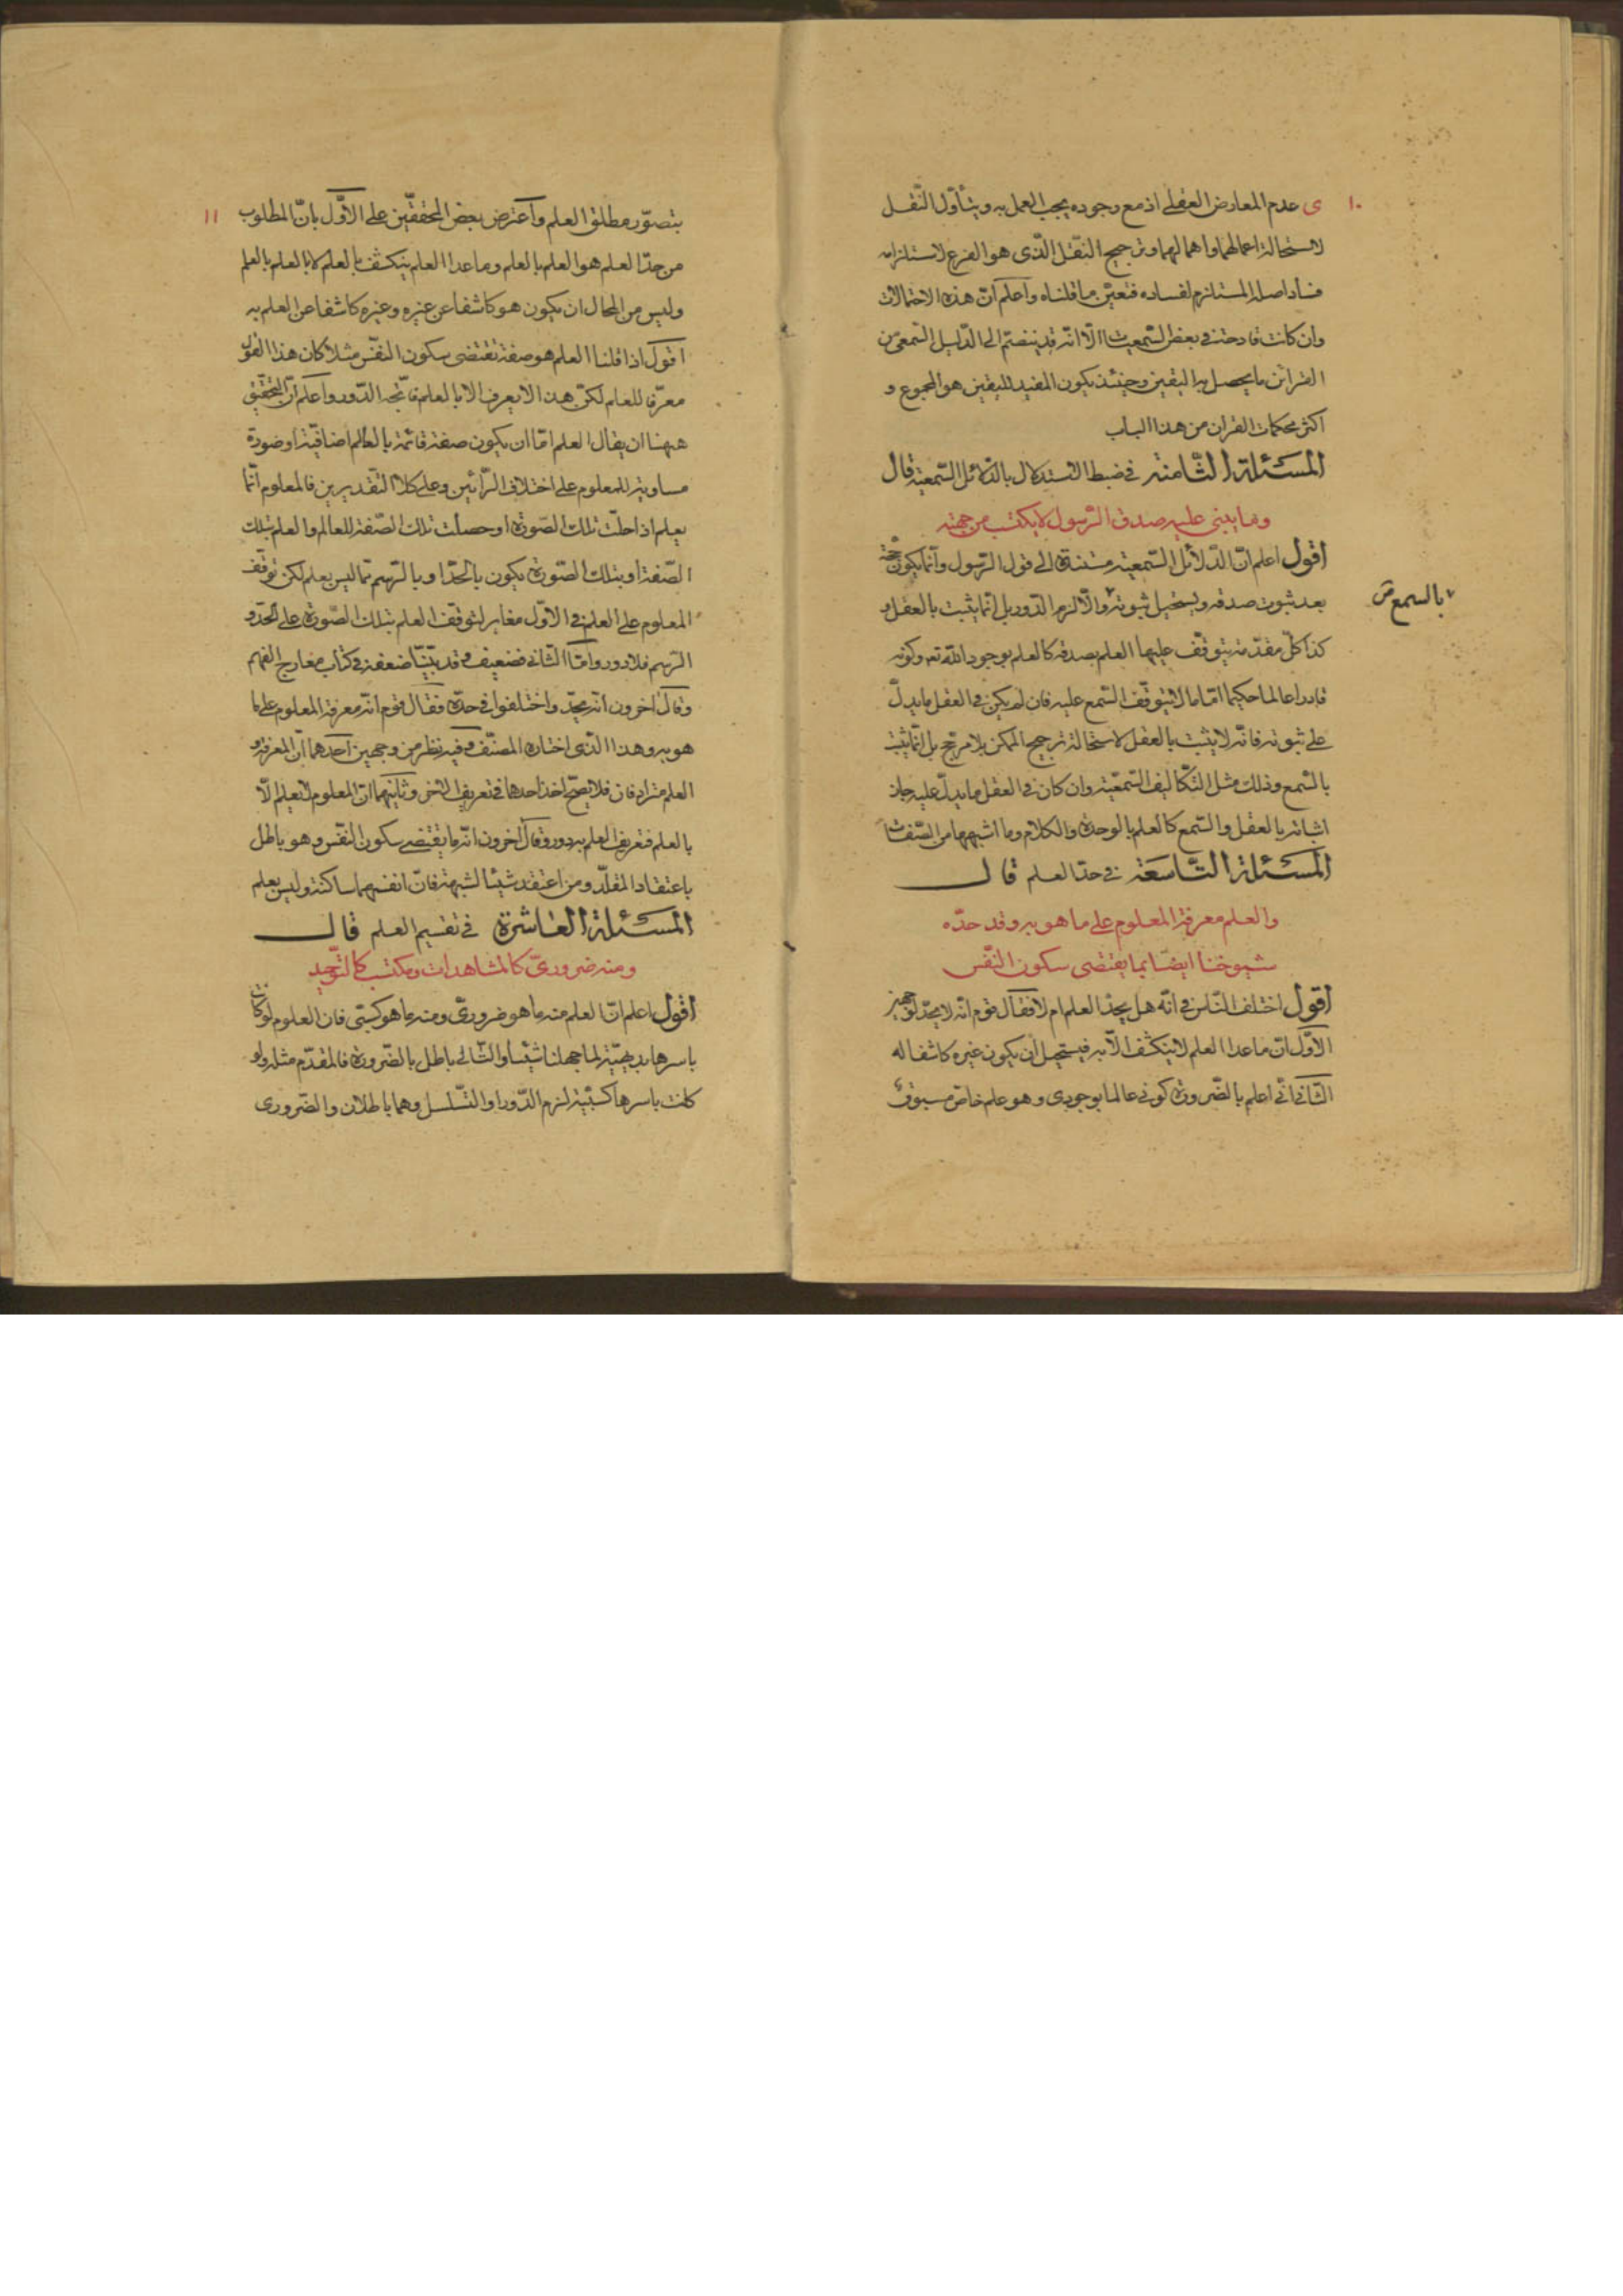 ١٠
ى عدم المعارض العقلى اذ مع وجوده يجب العمل به ويتأوّل النّقل
لاستحالة اعمالهما واهمالهما وترجيح النّقل الّذى هو الفرع لاستلزامه
فساد اصله المستلزم لفساده فتعيّن ما قلناه واعلم انّ هذه الاحتمالات
وان كانت قادحة فى بعض السّمعيات الّا انّه قد ينضمّ الى الدّليل السّمعى من
القرائن ما يحصل به اليقين وحينئذ يكون المفيد لليقين هو المجموع و
اكثر محكمات القران من هذا الباب
المسئلة الثّامنة فى ضبط الاستدلال بالدّلائل السّمعية قال
وما يبنى عليه صدق الرّسول لا يكتسب من جهته
اقول اعلم انّ الدّلائل السّمعية مستندة الى قول الرّسول وانّما يكون حجّة
بعد ثبوت صدقه ويستحيل ثبوته والّا لزم الدّور بل انّما يثبت بالعقل و
بالسمع ص
كذا كلّ مقدّمة يتوقّف عليها العلم بصدقه كالعلم بوجود اللّه تعه وكونه
قادرا عالما حكيما امّا ما لا يتوقّف السّمع عليه فان لم يكن فى العقل ما يدلّ
على ثبوته فانّه لا يثبت بالعقل لاستحالة ترجيح الممكن بلا مرجّح بل انّما يثبت
بالسّمع وذلك مثل التّكاليف السّمعيّة وان كان فى العقل ما يدلّ عليه جاز
اثباته بالعقل والسّمع كالعلم بالوحدة والكلام وما اشبههما من الصّفات
المسئلة التّاسعة فى حدّ العلم قال
والعلم معرفة المعلوم على ما هو به وقد حدّه
شيوخنا ايضا بما يقتضى سكون النّفس
اقول اختلف النّاس فى انّه هل يحدّ العلم ام لا فقال قوم انّه لا يحدّ لوجهين
الاوّل انّ ما عدا العلم لا ينكشف الّا به فيستحيل ان يكون غيره كاشفا له
الثّانى انّى اعلم بالضّرورة كونى عالما بوجودى وهو علم خاصّ مسبوق
١١
بتصوّر مطلق العلم واعترض بعض المحقّقين على الاوّل بانّ المطلوب
من حدّ العلم هو العلم بالعلم وما عدا العلم ينكشف بالعلم لا بالعلم بالعلم
وليس من المحال ان يكون هو كاشفا عن غيره وغيره كاشفا عن العلم به
اقول اذا قلنا العلم هو صفة تقتضى سكون النّفس مثلا كان هذا القول
معرّفا للعلم لكن هذا لا يعرف الا بالعلم فاتّجه الدّور واعلم انّ التّحقيق
ههنا ان يقال العلم امّا ان يكون صفة قائمة بالعالم اضافيّة او صورة
مساوية للمعلوم على اختلاف الرّائين وعلى كلا التّقديرين فالمعلوم انّما
يعلم اذا حلّت تلك الصّورة او حصلت تلك الصّفة للعالم والعلم بتلك
الصّفة او بتلك الصّورة يكون بالحدّ او بالرّسم ممّا ليس بعلم لكن توقّف
المعلوم على العلم فى الاوّل مغاير لتوقّف العلم بتلك الصّورة على الحدّ و
الرّسم فلا دور وامّا الثّانى فضعيف وقد بيّنّا ضعفه فى كتاب معارج الفهم
وقال اخرون انّه يحدّ واختلفوا فى حدّه فقال قوم انّه معرفة المعلوم على ما
هو به وهذا الّذى اختاره المصنّف وفيه نظر من وجهين احدهما انّ المعرفة و
العلم مترادفان فلا يصحّ اخذ احدهما فى تعريف الاخر وثانيهما انّ المعلوم لا يعلم الّا
بالعلم فتعريف العلم به دور وقال اخرون انّه ما يقتضى سكون النّفس وهو باطل
باعتقاد المقلّد ومن اعتقد شيئا لشبهة فانّ انفسهما ساكنة وليس بعلم
المسئلة العاشرة فى تقسيم العلم قال
ومنه ضرورىّ كالمشاهدات ومكتسب كالتّوحيد
اقول اعلم انّ العلم منه ما هو ضرورىّ ومنه ما هو كسبّى فان العلوم لو كانت
باسرها بديهيّة لما جهلنا شيئا والتّالى باطل بالضّرورة فالمقدّم مثله ولو
كانت باسرها كسبيّة لزم الدّور او التّسلسل وهما باطلان والضّرورى